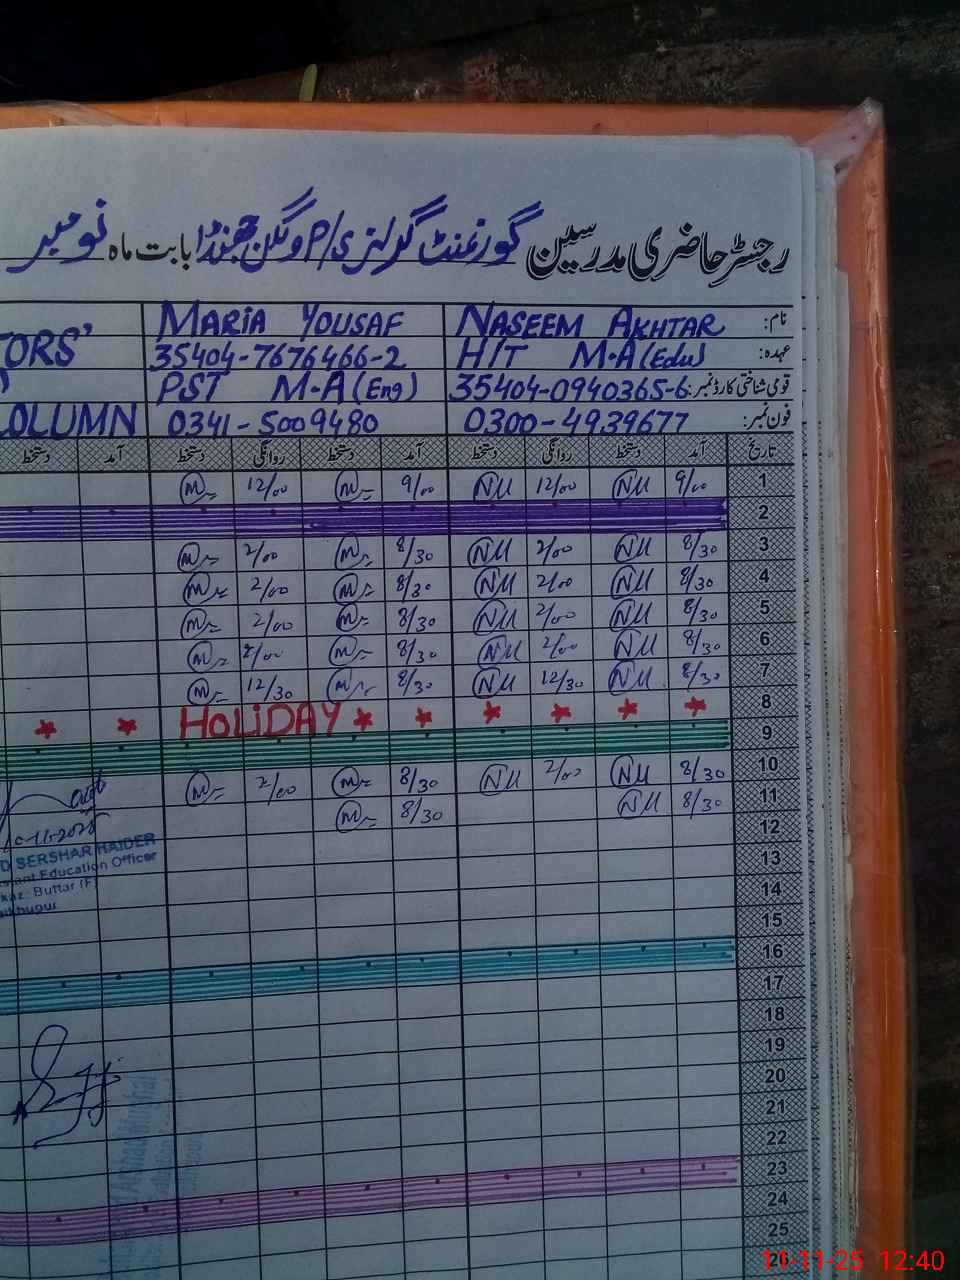 رجسٹر حاضری مدرسین گورنمنٹ گرلز ی/م وگن جھنڈا بابت ماہ نومبر
نام: NASEEM AKHTAR MARIA YOUSAF
عہدہ: H/T M.A(Edu) 35404-7676466-2 TORS'
قومی شناختی کارڈ نمبر: 35404-0940365-6 PST M.A(Eng)
فون نمبر: 0300-4939677 0341-5009480 COLUMN
تاریخ آمد دستخط روانگی دستخط آمد دستخط روانگی دستخط آمد دستخط
1 9/00 NM 12/00 NM 9/00 M 12/00 M
2
3 8/30 NM 2/00 NM 8/30 M 2/00 M
4 8/30 NM 2/00 NM 8/30 M 2/00 M
5 8/30 NM 2/00 NM 8/30 M 2/00 M
6 8/30 NM 2/00 NM 8/30 M 2/00 M
7 8/30 NM 12/30 NM 8/30 M 12/30 M
8 HOLIDAY
9
10 8/30 NM 2/00 NM 8/30 M 2/00 M
11 8/30 NM 8/30 M
12
13
14
15
16
17
18
19
20
21
22
23
24
25
D SERSHAR HAIDER
stant Education Officer
kaz: Buttar (F)
11-11-25 12:40